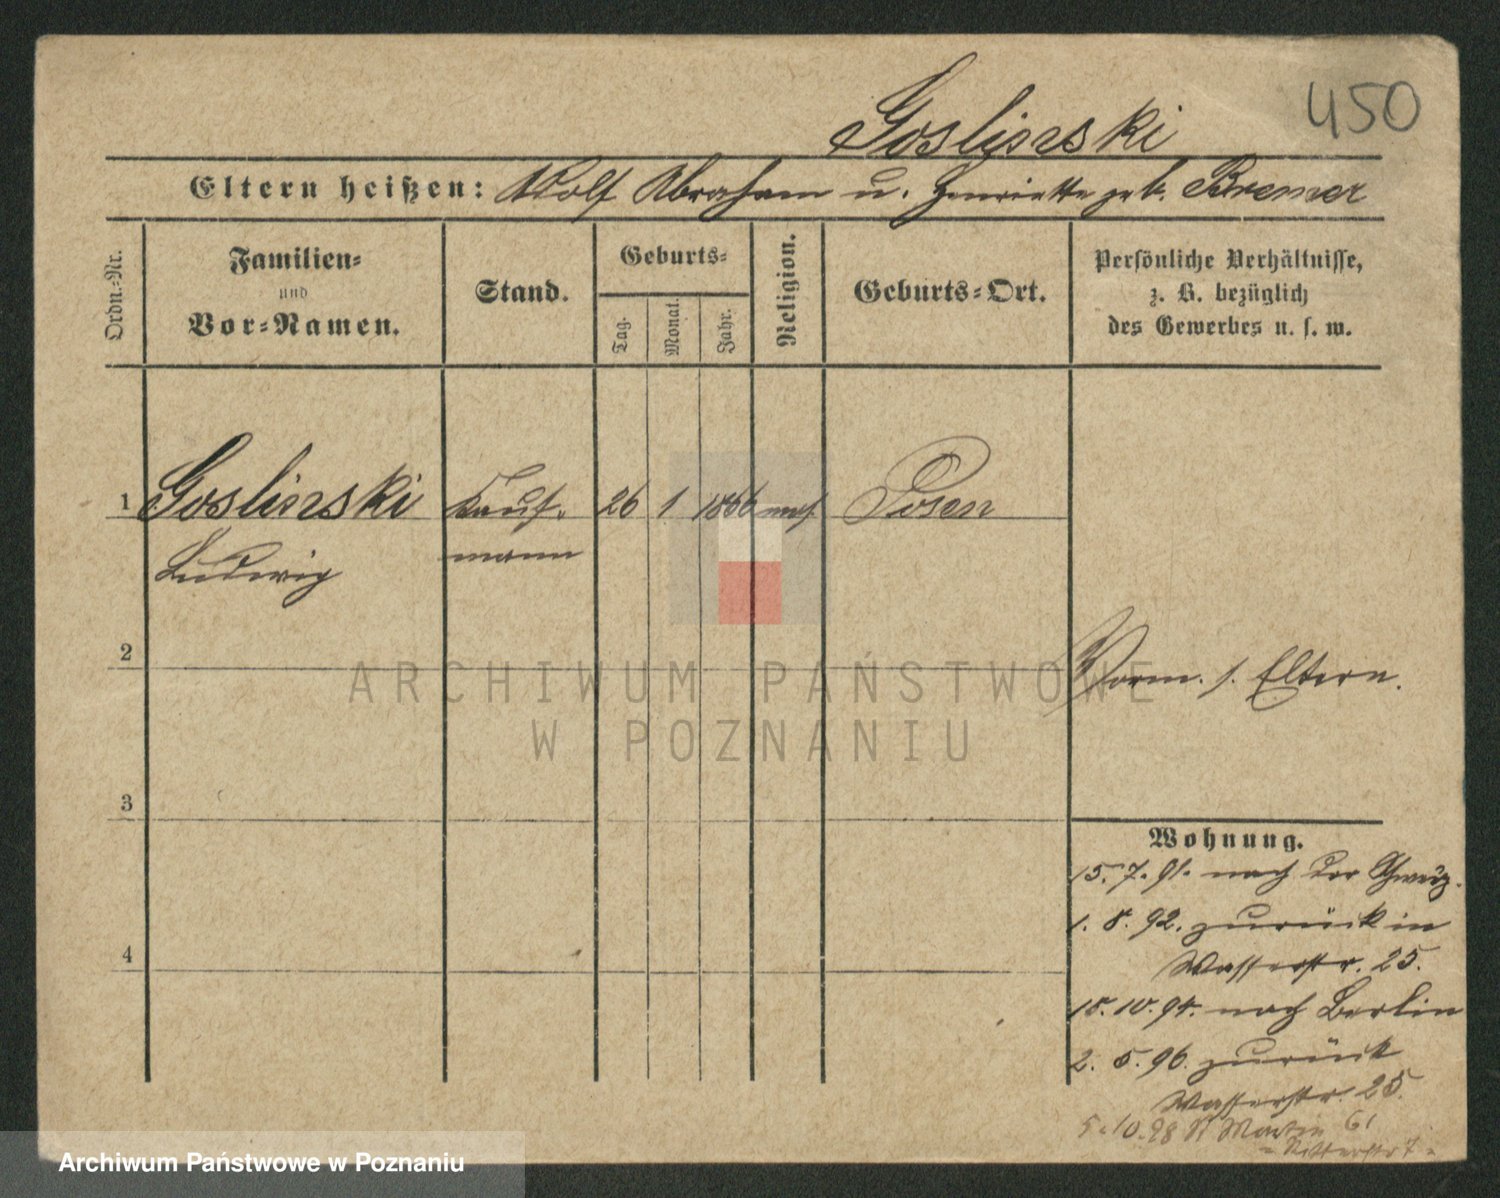 450
Goslinski
Eltern heißen: Adolf Abraham u. Henriette geb. Bremer
Ordn.-Nr.
Familien-
und
Vor-Namen.
Stand.
Geburts-
Tag.
Monat.
Jahr.
Religion.
Geburts-Ort.
Persönliche Verhältnisse,
z. B. bezüglich
des Gewerbes u. s. w.
1 Goslinski Kauf- 26 1 1866 mos. Posen
Ludwig mann
2
Vorm. s. Eltern.
ARCHIWUM PAŃSTWOWE
W POZNANIU
3
Wohnung.
15. 7. 91. nach der Schweiz.
1. 8. 92. zurück in
Wasserstr. 25.
4
18. 10. 94. nach Berlin
2. 5. 96. zurück
Wasserstr. 25.
5.10.98 St Martin 61
Ritterstr 7
Archiwum Państwowe w Poznaniu